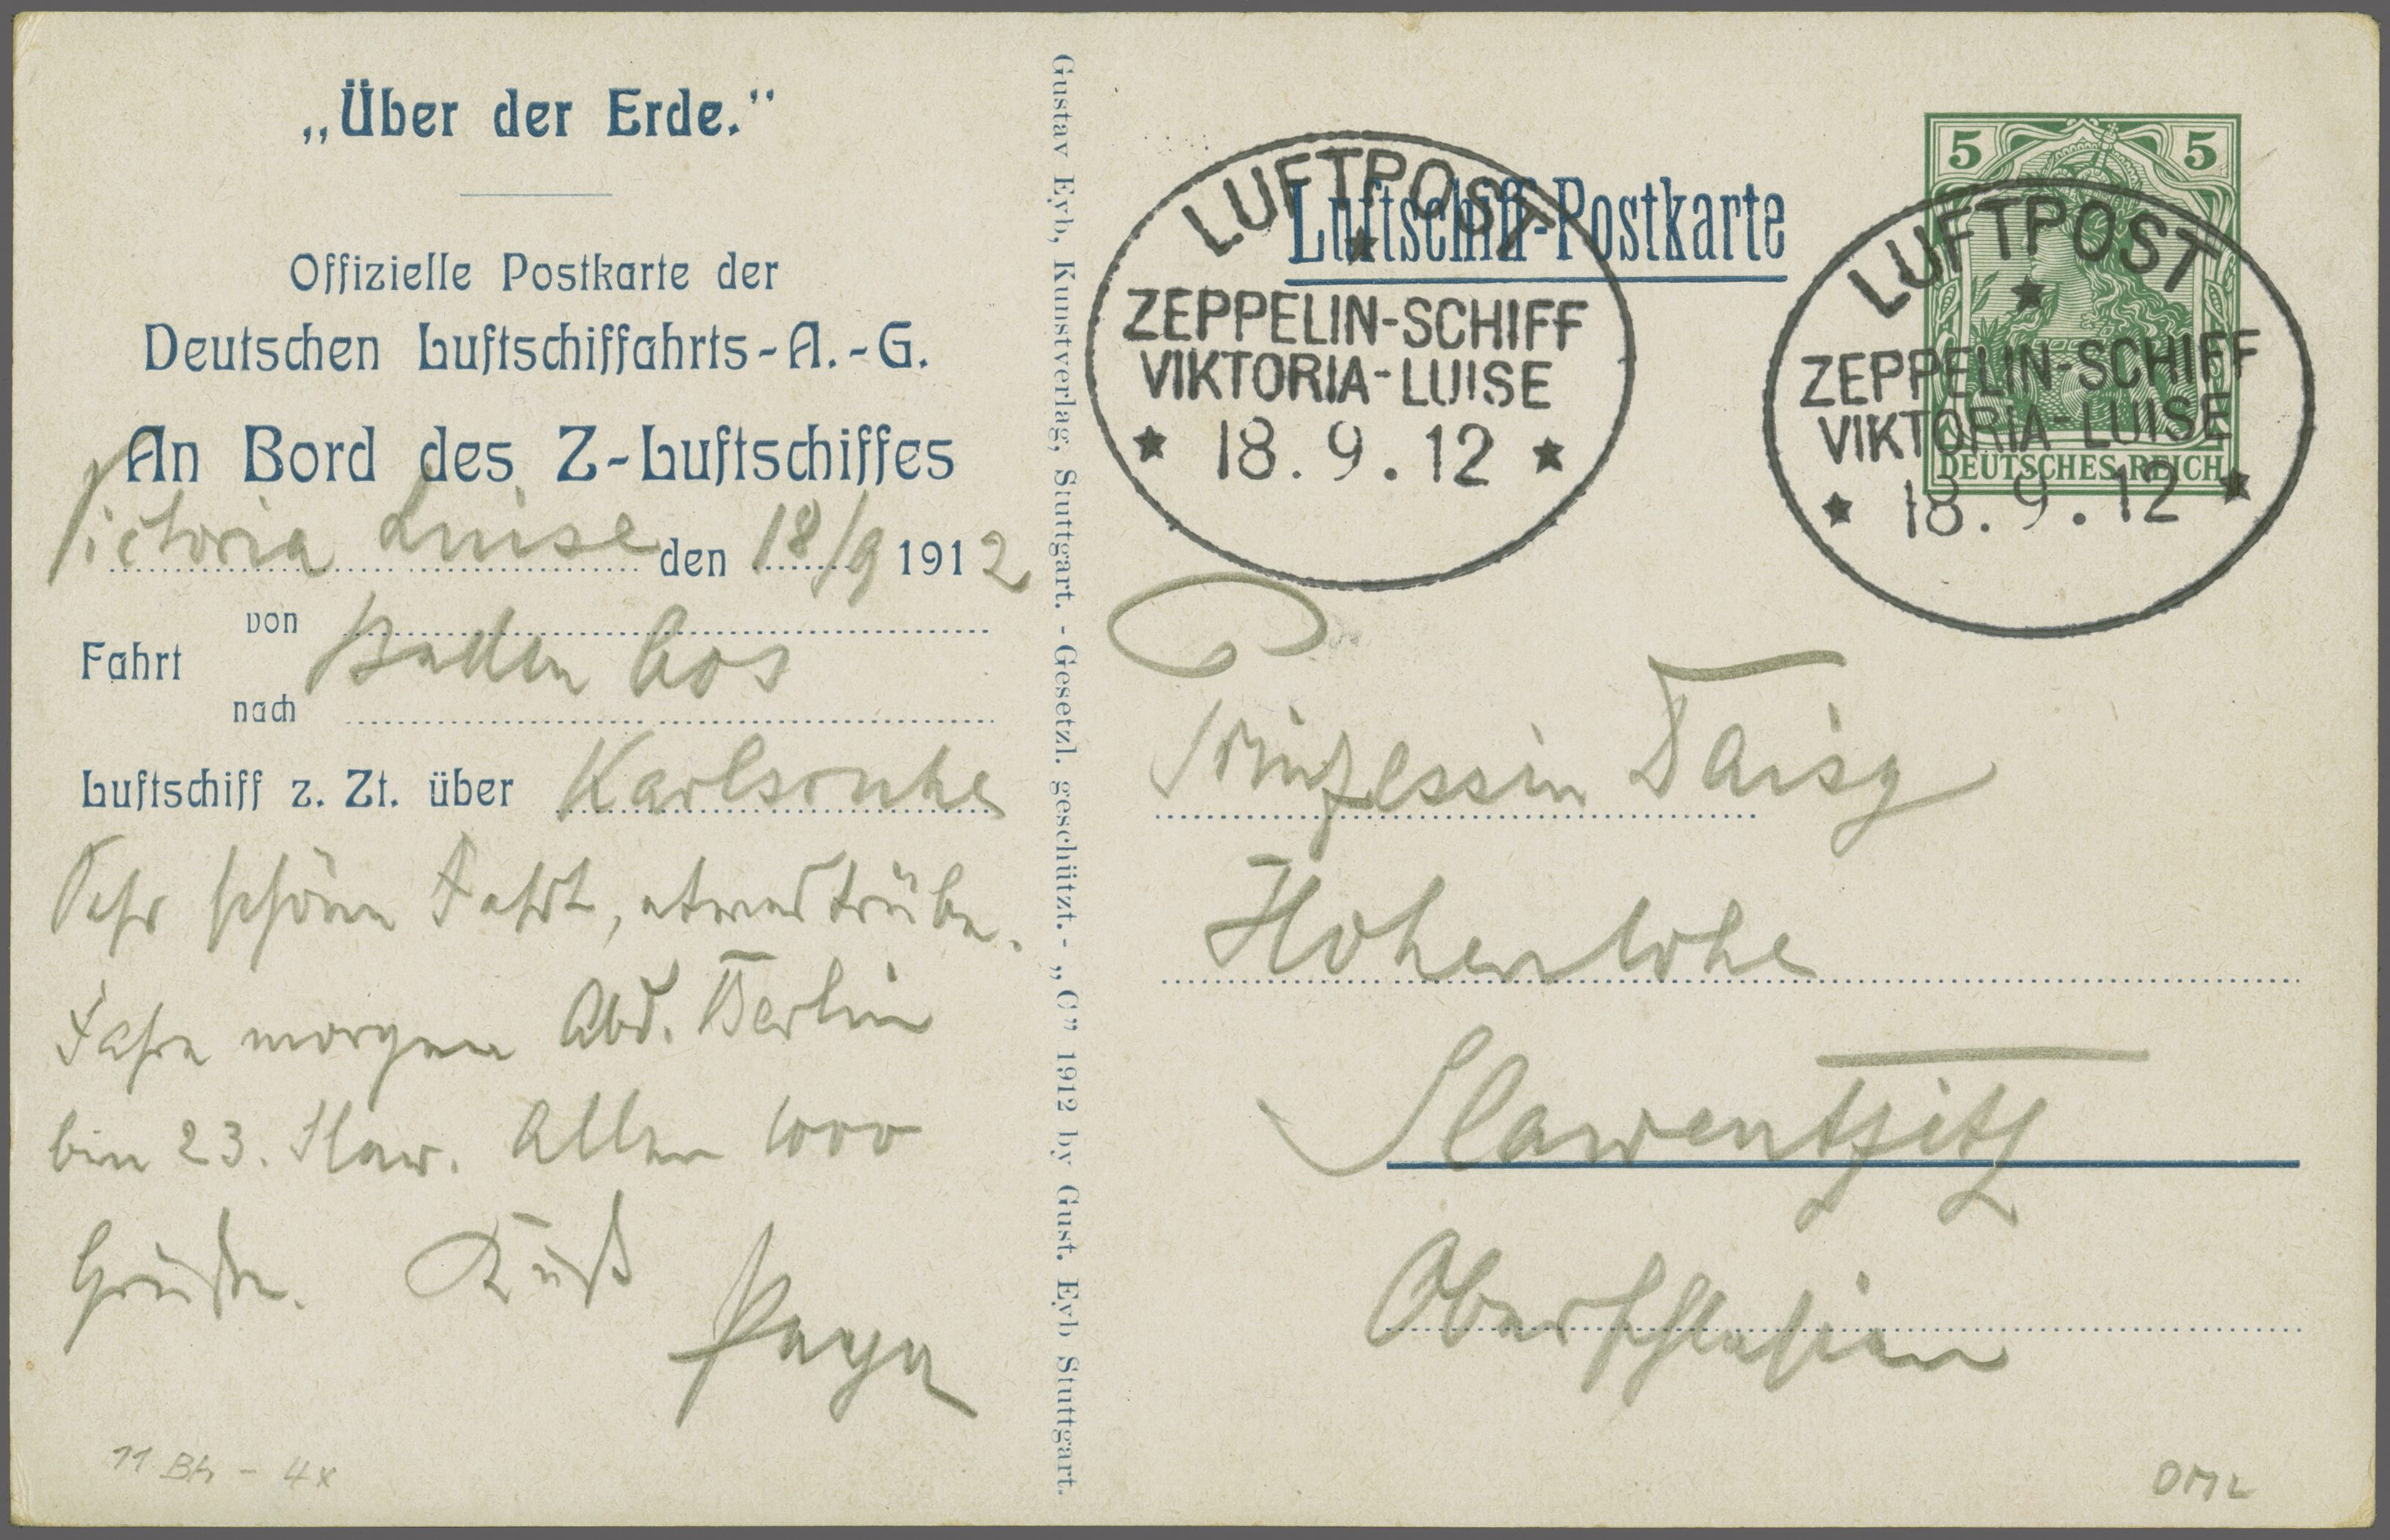 „Über der Erde.”
Offizielle Postkarte der
Deutschen Luftschiffahrts-A.-G.
An Bord des Z-Luftschiffes
Victoria Luise den 18/9 1912
Fahrt von Baden Oos
nach
Luftschiff z. Zt. über Karlsruhe
Sehr schöne Fahrt, etwas trübe.
Fahre morgen Abd. Berlin
bin 23. Slaw. Allen 1000
Grüße. Kuß
Papa
11 Bh - 4x
Gustav Eyb, Kunstverlag, Stuttgart. - Gesetzl. geschützt. - „C” 1912 by Gust. Eyb Stuttgart.
Luftschiff-Postkarte
LUFTPOST
ZEPPELIN-SCHIFF
VIKTORIA-LUISE
18.9.12
5 5
DEUTSCHES REICH
LUFTPOST
ZEPPELIN-SCHIFF
VIKTORIA-LUISE
18.9.12
Prinzessin Daisy
Hohenlohe
Slawentzitz
Oberschlesien